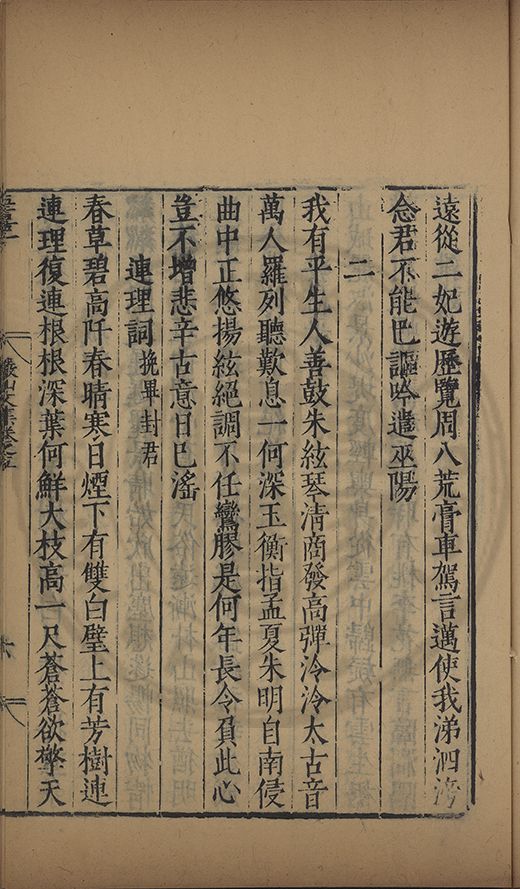 遠從二妃遊歷覽周八荒膏車駕言邁使我涕泗滂
念君不能已謳吟遣巫陽
二
我有平生人善鼓朱絃琴清商發高彈泠泠太古音
萬人羅列聽歎息一何深玉衡指孟夏朱明自南侵
曲中正悠揚絃絕調不任鸞膠是何年長令負此心
豈不增悲辛古意日已遙
連理詞挽畢封君
春草碧高阡春晴寒日煙下有雙白璧上有芳樹連
連理復連根根深葉何鮮大枝高一尺蒼蒼欲擎天